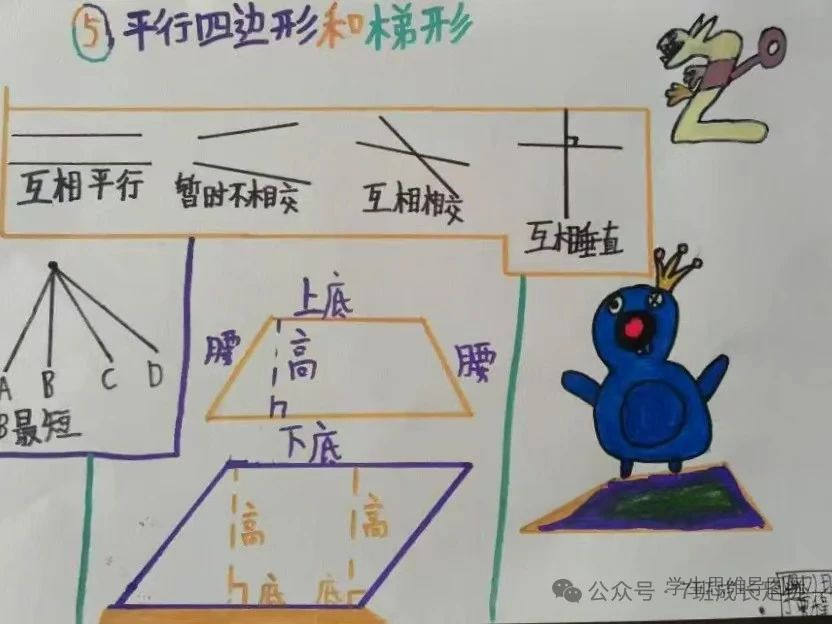 ⑤平行四边形和梯形
互相平行
暂时不相交
互相相交
互相垂直
A B C D
B最短
上底
腰
高
腰
下底
高
高
底
底
公众号